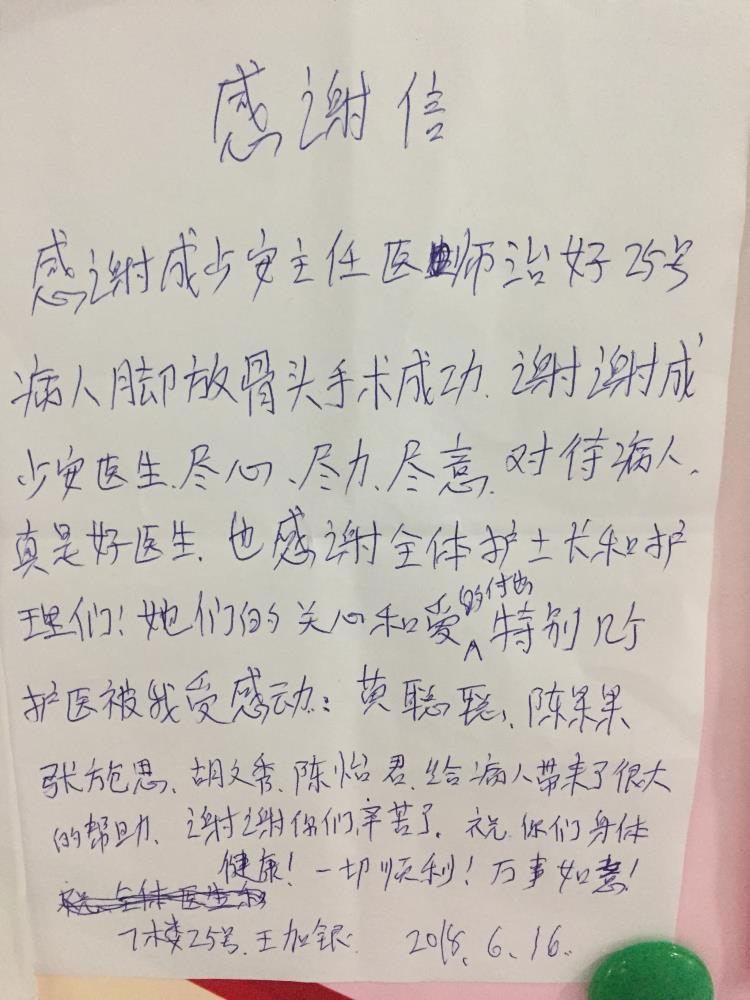 感谢信
感谢成少安主任医师治好25号
病人脚放骨头手术成功.谢谢成
少安医生、尽心、尽力、尽意.对待病人.
真是好医生.也感谢全体护士长和护
理们!她们的关心和爱的付出特别几个
护医被我受感动:黄聪聪、陈果果
张施思、胡文秀、陈怡君.给病人带来了很大
的帮助.谢谢你们辛苦了.祝你们身体
健康!一切顺利!万事如意!
祝全体医生和
7楼25号.王加银 2018.6.16.